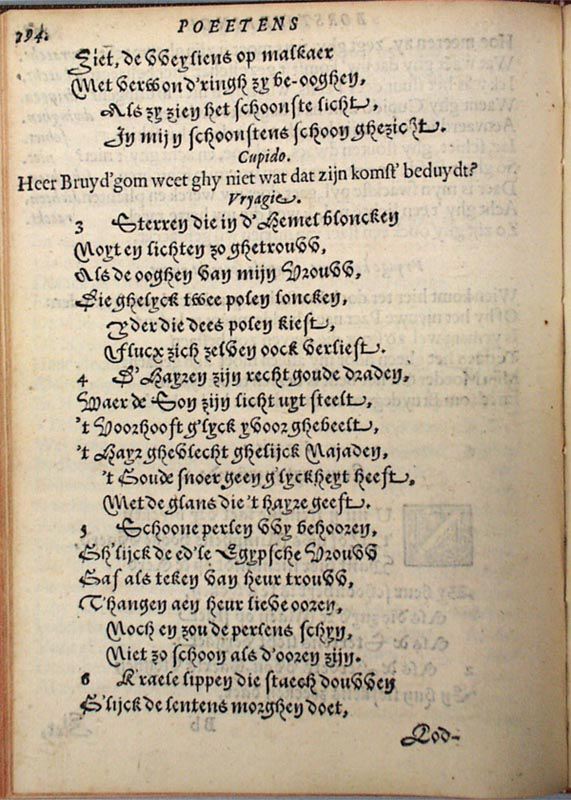 194. POEETENS
Ziet, de VVeyliens op malkaer
Met verwond'ringh zy be-ooghen,
Als zy zien het schoonste licht,
In mijn schoonstens schoon ghezicht.
Cupido.
Heer Bruyd'gom weet ghy niet wat dat zijn komst' beduydt?
Vryagie.
3 Sterren die in d'Hemel bloncken
Noyt en lichten zo ghetrouvv,
Als de ooghen van mijn Vrouvv,
Die ghelyck twee polen loncken,
Yder die dees polen kiest,
Flucx zich zelven oock verliest.
4 D'Hayren zijn recht goude draden,
Waer de Son zijn licht uyt steelt,
't Voorhooft g'lyck yvoor ghebeelt,
't Hayr ghevlecht ghelijck Najaden,
't Goude snoer geen g'lyckheyt heeft,
Met de glans die 't hayre geeft.
5 Schoone perlen vvy behooren,
Gh'lijck de ed'le Egypsche Vrouvv
Gaf als teken van heur trouvv,
T'hangen aen heur lieve ooren,
Noch en zou de perlens schyn,
Niet zo schoon als d'ooren zijn.
6 Kraele lippen die staech douvven
G'lijck de lentens morghen doet,
Rod-